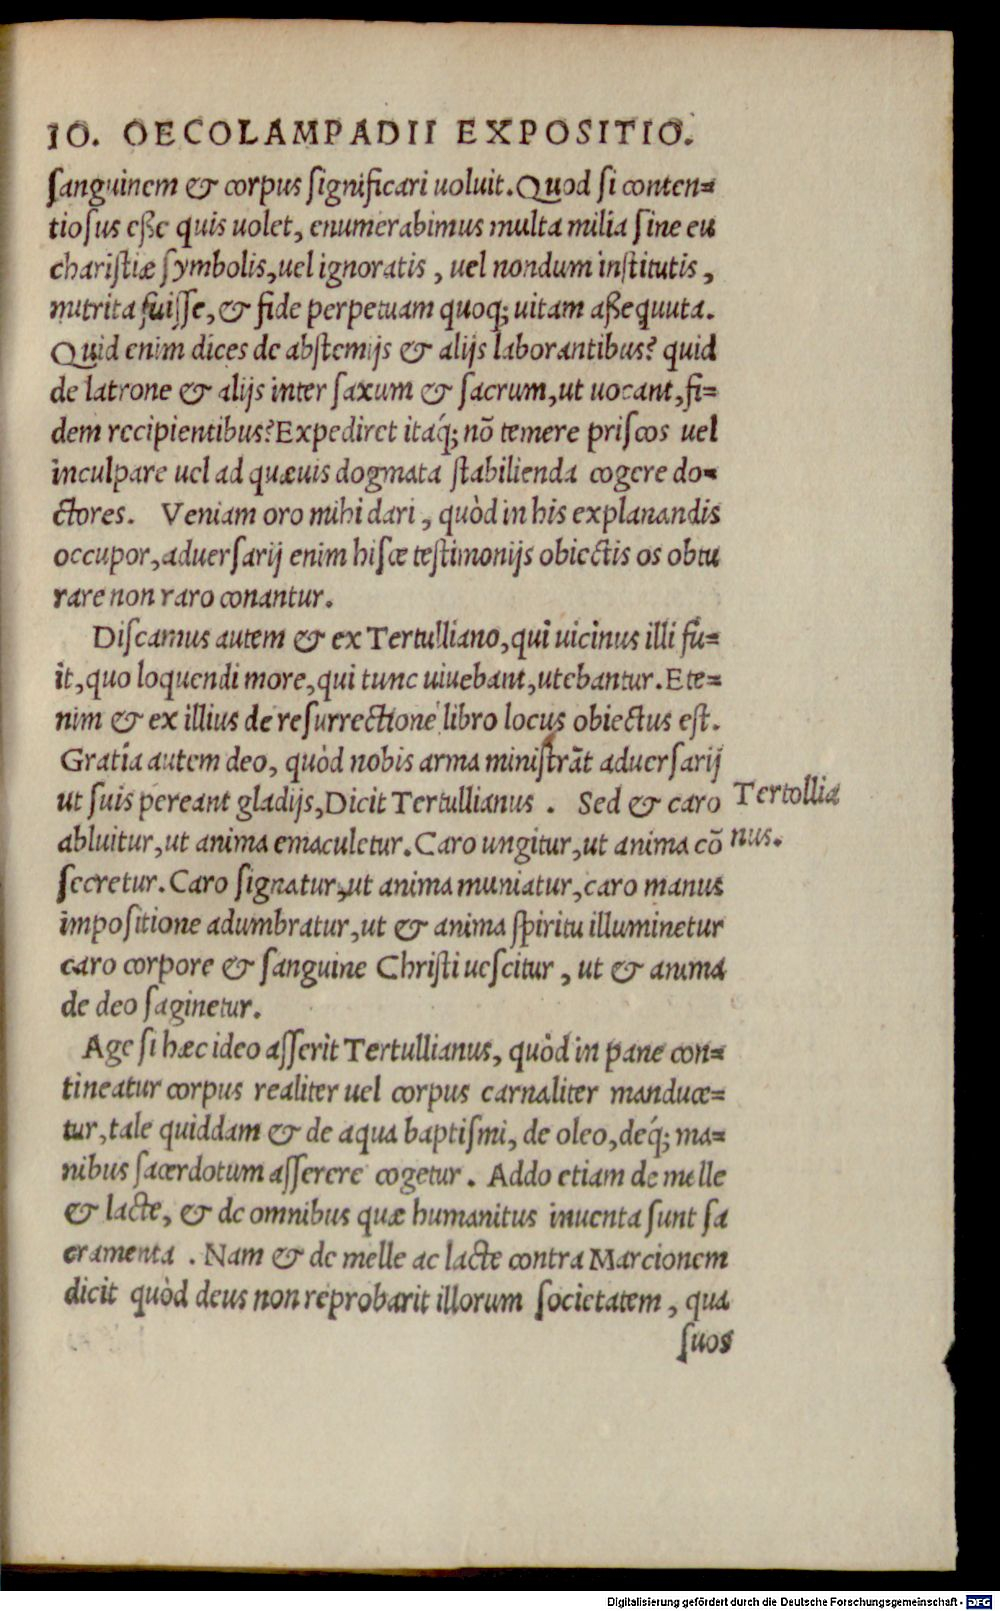 IO. OECOLAMPADII EXPOSITIO.
sanguinem & corpus significari uoluit. Quod si conten=
tiosus eße quis uolet, enumerabimus multa milia sine eu
charistiæ symbolis, uel ignoratis, uel nondum institutis,
nutrita fuisse, & fide perpetuam quoq; uitam aßequuta.
Quid enim dices de abstemijs & alijs laborantibus? quid
de latrone & alijs inter saxum & sacrum, ut uocant, fi=
dem recipientibus? Expediret itaq́; nō temere priscos uel
inculpare uel ad quæuis dogmata stabilienda cogere do=
ctores. Veniam oro mihi dari, quòd in his explanandis
occupor, aduersarij enim hisce testimonijs obiectis os obtu
rare non raro conantur.
Discamus autem & ex Tertulliano, qui uicinus illi fu=
it, quo loquendi more, qui tunc uiuebant, utebantur. Ete=
nim & ex illius de resurrectione libro locus obiectus est.
Gratia autem deo, quòd nobis arma ministrāt aduersarij
ut suis pereant gladijs, Dicit Tertullianus. Sed & caro
Tertollia
abluitur, ut anima emaculetur. Caro ungitur, ut anima cō
nus.
secretur. Caro signatur, ut anima muniatur, caro manus
impositione adumbratur, ut & anima spiritu illuminetur
caro corpore & sanguine Christi uescitur, ut & anima
de deo saginetur.
Age si hæc ideo asserit Tertullianus, quòd in pane con=
tineatur corpus realiter uel corpus carnaliter manduce=
tur, tale quiddam & de aqua baptismi, de oleo, deq́; ma=
nibus sacerdotum asserere cogetur. Addo etiam de melle
& lacte, & de omnibus quæ humanitus inuenta sunt sa
cramenta. Nam & de melle ac lacte contra Marcionem
dicit quòd deus non reprobarit illorum societatem, qua
suos
Digitalisierung gefördert durch die Deutsche Forschungsgemeinschaft - DFG